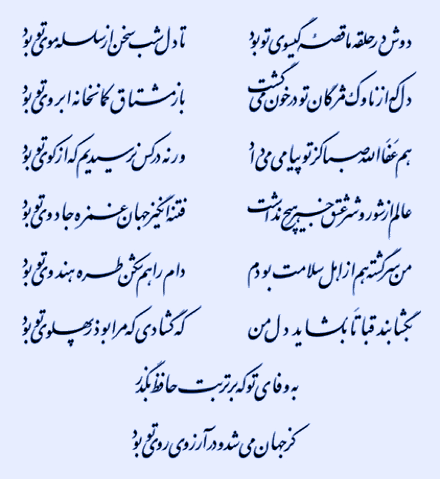 دوش در حلقه ما قصه گیسوی تو بود تا دل شب سخن از سلسله موی تو بود
دل که از ناوک مژگان تو در خون می‌گشت باز مشتاق کمانخانه ابروی تو بود
هم عفا الله صبا کز تو پیامی می‌داد ور نه در کس نرسیدیم که از کوی تو بود
عالم از شور و شر عشق خبر هیچ نداشت فتنه انگیز جهان غمزه جادوی تو بود
من سرگشته هم از اهل سلامت بودم دام راهم شکن طره هندوی تو بود
بگشا بند قبا تا بگشاید دل من که گشادی که مرا بود ز پهلوی تو بود
به وفای تو که بر تربت حافظ بگذر
کز جهان می‌شد و در آرزوی روی تو بود